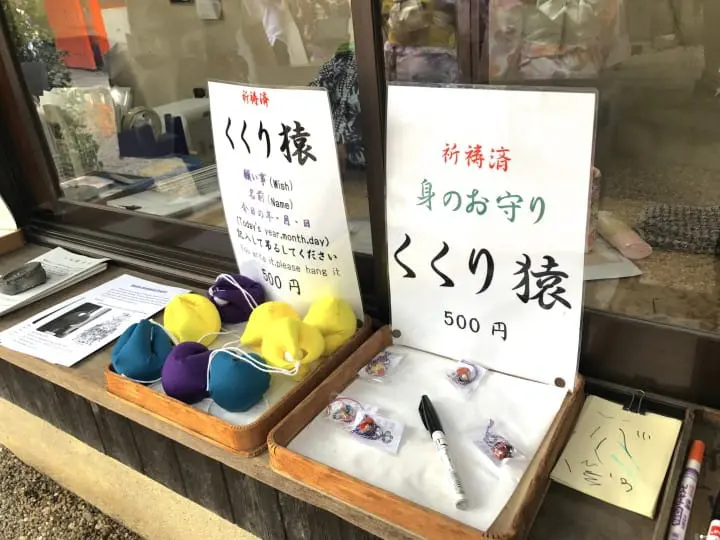 祈祷済
くくり猿
願い事(Wish)
名前(Name)
今日の年・月・日
(Today's year,month,day)
記入して吊るしてください
You write it,please hang it
500円
祈祷済
身のお守り
くくり猿
500円